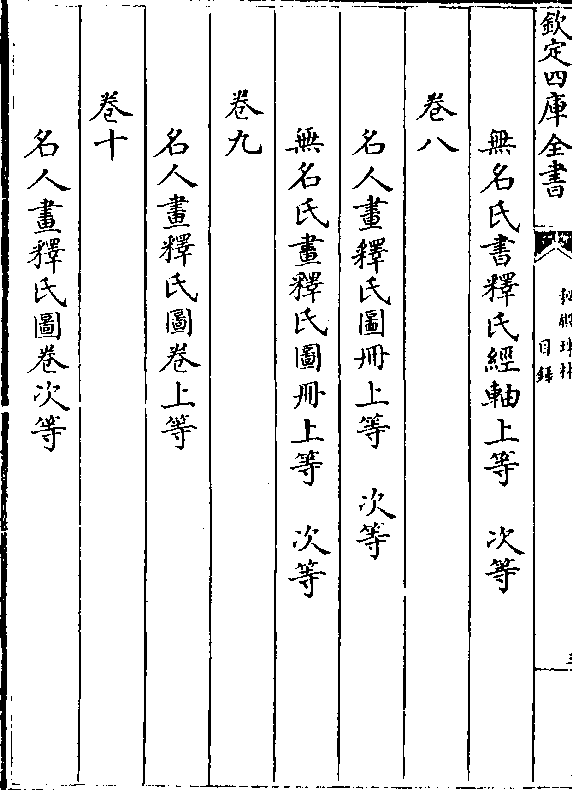 欽定四庫全書
秘殿珠林
目錄
無名氏書釋氏經軸上等　次等
卷八
名人畫釋氏圖冊上等　次等
無名氏畫釋氏圖冊上等　次等
卷九
名人畫釋氏圖卷上等
卷十
名人畫釋氏圖卷次等